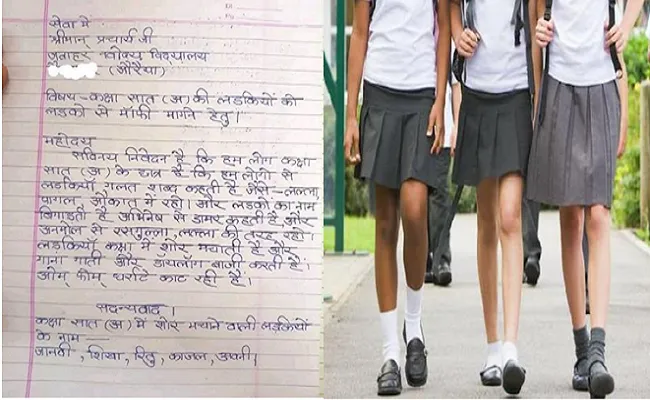 सेवा में
श्रीमान् प्रचार्य जी
जवाहर नवोदय विद्यालय
(औरैया)
विषय - कक्षा सात (अ) की लडकियों की
लडको से मॉफी मागने हेतु।
महोदय
सविनय निवेदन है कि हम लोग कक्षा
सात (अ) के छात्र है कि हम लोगो से
लडकियाँ गलत शब्द कहती है जैसे - लल्ला,
पागल, औकात में रहो। और लडको का नाम
बिगाडती है अभिनेष से डामर कहती है और
अनमोल से रसगुल्ला, लल्ला की तरह रहो।
लडकियाँ कक्षा में शोर मचाती है और
गाना गाती और डॉयलॉग बाजी करती है।
ओम् फोम् धर्राटे काट रही है।
सदन्यवाद।
कक्षा सात (अ) में शोर मचाने वाली लडकियों
के नाम —
जानवी, शिखा, रितु, काजल,